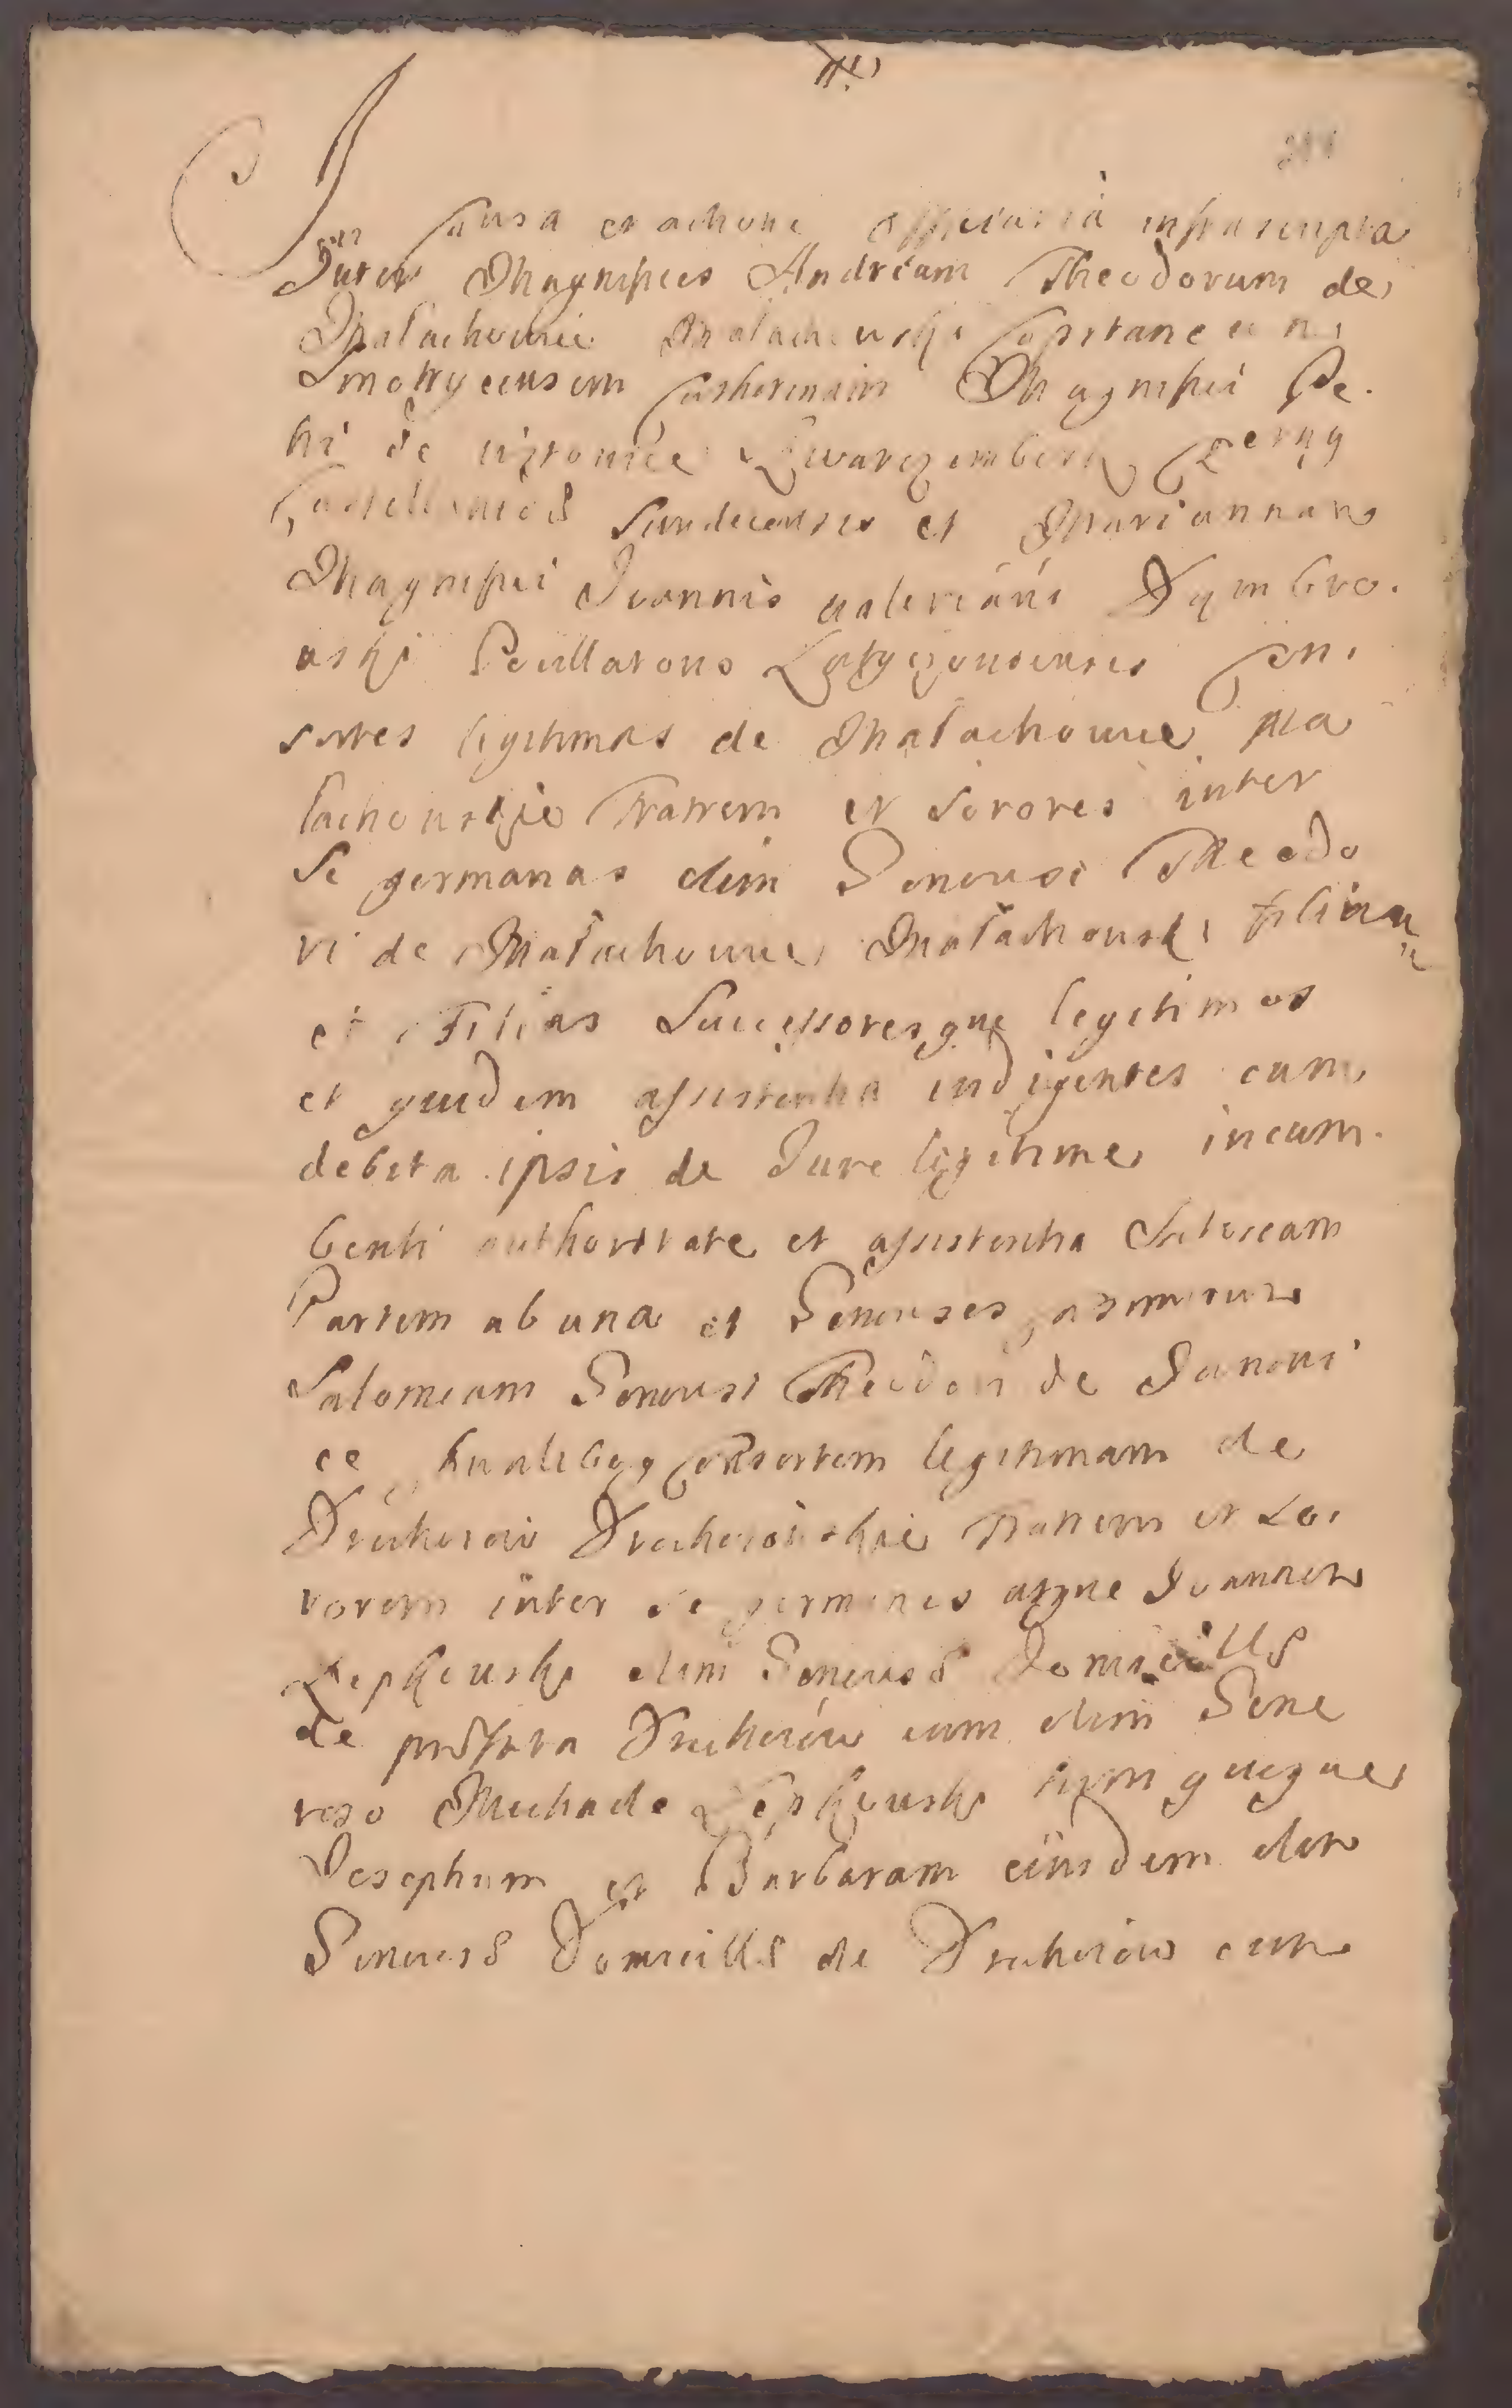 In Causa et actione officiosa infrascripta
Inter Magnificos Andream Theodorum de
Małachowice Małachowski Capitaneum
Smotrycensem Catherinam Magnifici Pe
tri de Witowice Szwarczemberk Czerny
Castellanidis Sandecensis et Mariannam
Magnifici Joannis Valeriani Dąmbro
wski Pocillatoris Latyczoviensis Con
sortes legitimas de Małachowice Ma
łachowskie Fratrem et Sorores inter
se germanas olim Generosi Theodo
ri de Małachowice Małachowski Filium
et Filias Successoresque legitimos
et quidem assistentia indigentes cum
debita ipsis de Jure legitime incum
benti authoritate et assistentia Actoream
Partem ab una et Generosos
Salomeam Generosi Theodori de Janowi
ce consortem legitimam de
Fratrem et So
rorem inter se germanos atque Joannem
Lepkowski olim Generosae Domicellae
de praefata cum olim Gene
roso Michaele Lepkowski tum quoque
Josephum et Barbaram eiusdem olim
Generosae Domicellae de cum